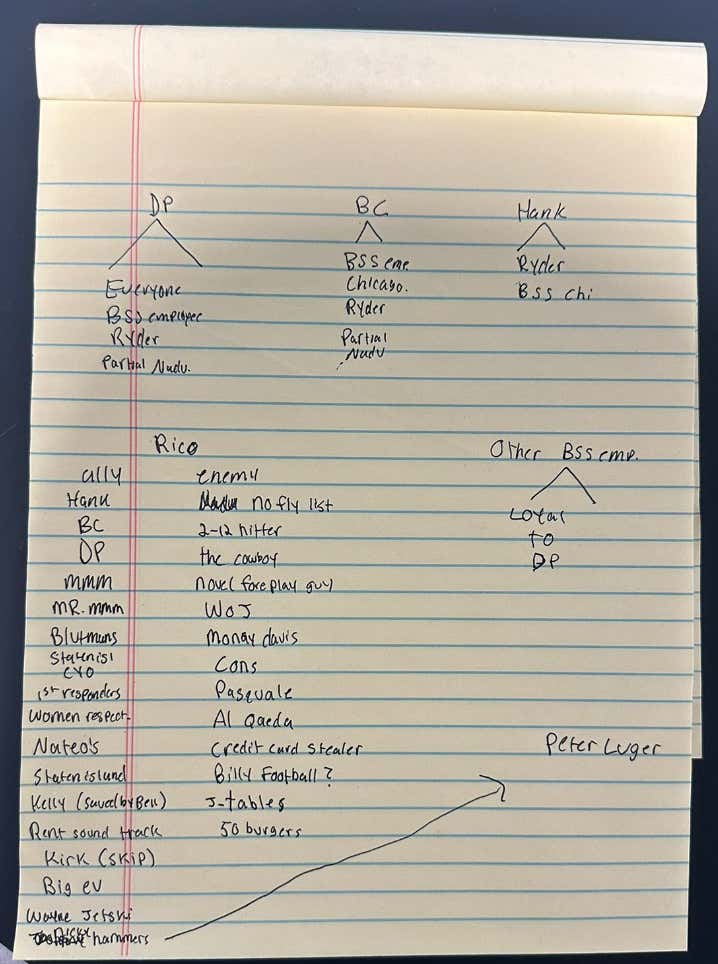 DP BC Hank
Everyone
BSS employee
Ryder
Partial Nudu.
BSS eme
Chicago.
Ryder
Partial
Nudu
Ryder
BSS chi
Rico
ally enemy
Hank no fly list
BC 2-12 hitter
DP the cowboy
mmm novel foreplay guy
MR. mmm WOJ
Blutmans Monay davis
Statenisl
CYO Cons
1st responders Pasquale
Women respect. Al Qaeda
Nateo's Credit card stealer
Staten island Billy Football?
Kelly (saved by Bell) J-tables
Rent sound track 50 burgers
Kirk (SKIP)
Big ev
Wayne Jetski
Nicky hammers
Other BSS emp.
Loyal
TO
DP
Peter Luger